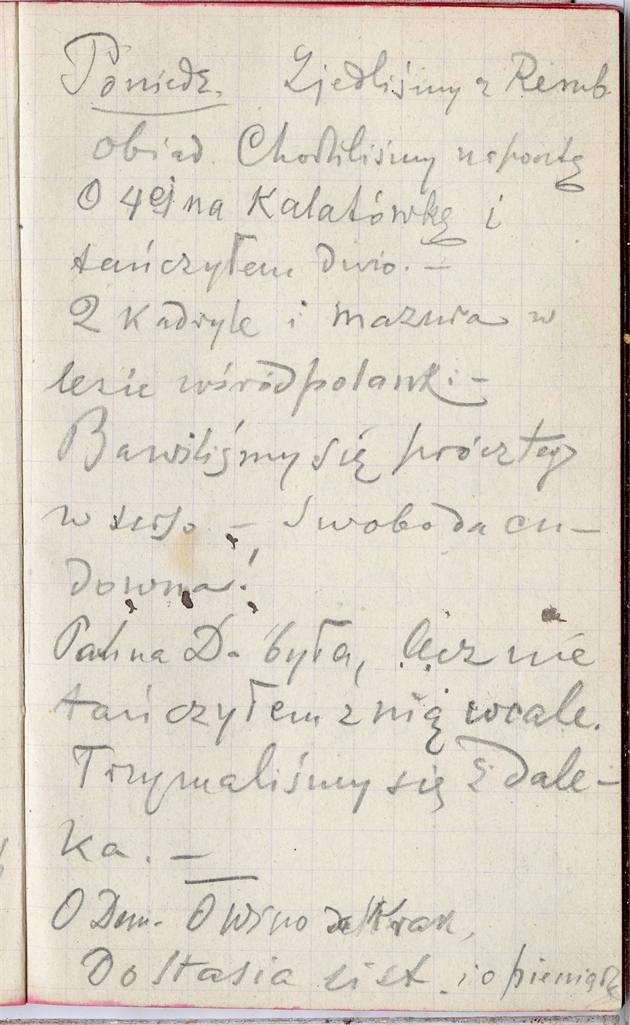 Poniedz. Zjedliśmy z Remb
obiad. Chodziliśmy na pocztę
O 4ej na Kalatówkę i
tańczyłem dwio. –
2 Kadryle i mazura w
lesie wśród polank. –
Bawiliśmy się prócz tego
w serso – Swoboda cu–
downa!
Panna D. była, lecz nie
tańczyłem z nią wcale.
Trzymaliśmy się z dale–
ka. –
O Dem. O wino Krak,
Do Stasia list i o pieniądze